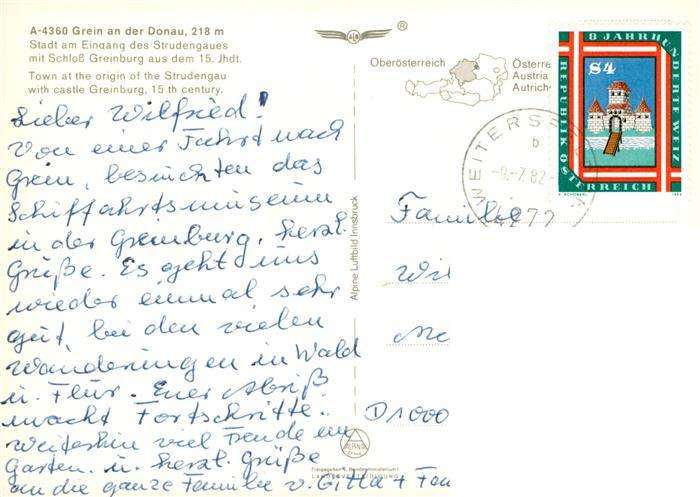 A-4360 Grein an der Donau, 218 m
Stadt am Eingang des Strudengaues
mit Schloß Greinburg aus dem 15. Jhdt.
Town at the origin of the Strudengau
with castle Greinburg, 15 th century.
®
Oberösterreich
Österre
Austria
Autrich
8 JAHRHUNDERTE WEIZ
REPUBLIK ÖSTERREICH
S4
WEITERSF
b
-7.82
4272
Lieber Wilfried!
Von einer Fahrt nach
Grein, besuchten das
Schiffahrtsmuseum
in der Greinburg, herzl.
Grüße. Es geht uns
wieder einmal sehr
gut, bei den vielen
Wanderungen in Wald
u. Flur. Euer Abriß
macht Fortschritte.
Weiterhin viel Freude im
Garten. u. herzl. Grüße
an die ganze Familie v. Gitta + 
Alpine Luftbild Innsbruck
Familie
Wil
D 1000